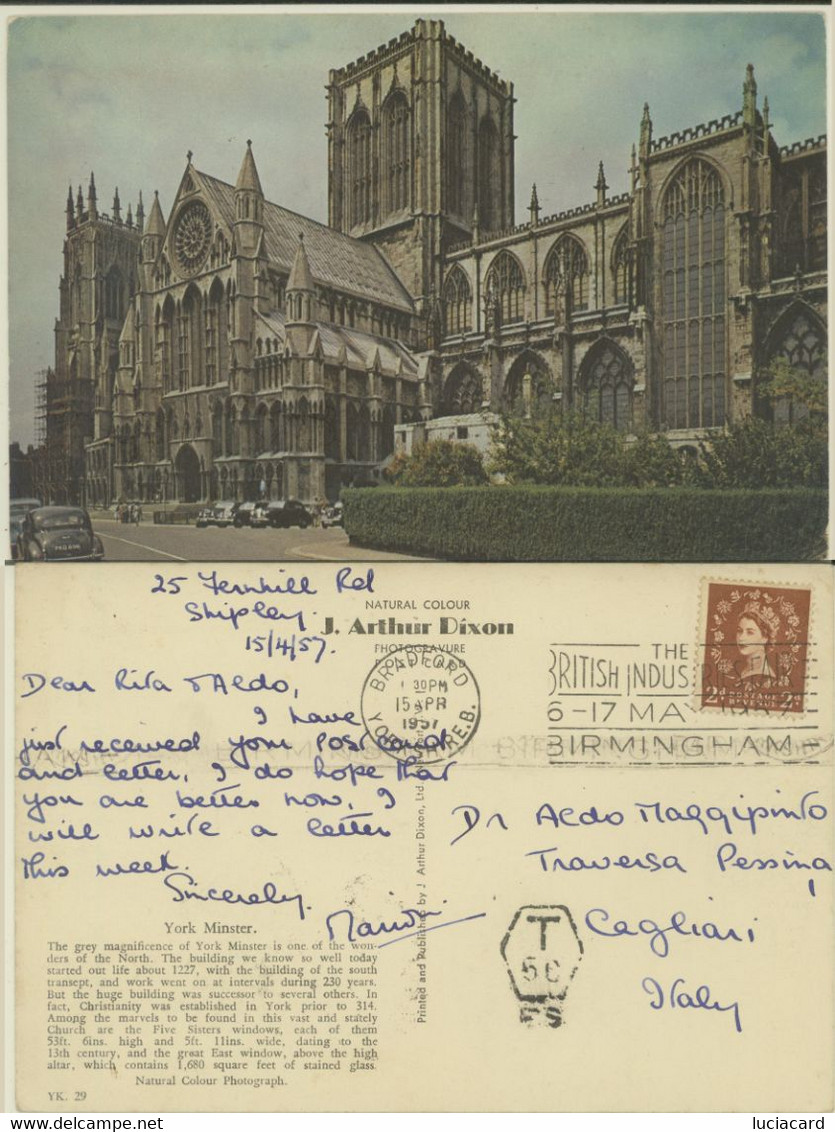 25 Fernhill Rd
Shipley.
15/4/57.
NATURAL COLOUR
J. Arthur Dixon
PHOTOGRAVURE
POST CARD
BRADFORD
1 30PM
15 APR
1957
YORKSHIRE.B.
THE
BRITISH INDUS
6-17 MAY
BIRMINGHAM
2d POSTAGE REVENUE 2d
Dear Rita & Aldo,
I have
just received your Post card
and letter, I do hope that
you are better now, I
will write a letter
this week.
Sincerely.
Dr Aldo Maggipinto
Traversa Pessina
Cagliari
Italy
T
50
Printed and Published by J Arthur Dixon, Ltd
York Minster.
The grey magnificence of York Minster is one of the won-
ders of the North. The building we know so well today
started out life about 1227, with the building of the south
transept, and work went on at intervals during 230 years.
But the huge building was successor to several others. In
fact, Christianity was established in York prior to 314.
Among the marvels to be found in this vast and stately
Church are the Five Sisters windows, each of them
53ft. 6ins. high and 5ft. 11ins. wide, dating to the
13th century, and the great East window, above the high
altar, which contains 1,680 square feet of stained glass.
Natural Colour Photograph.
YK. 29
luciacard